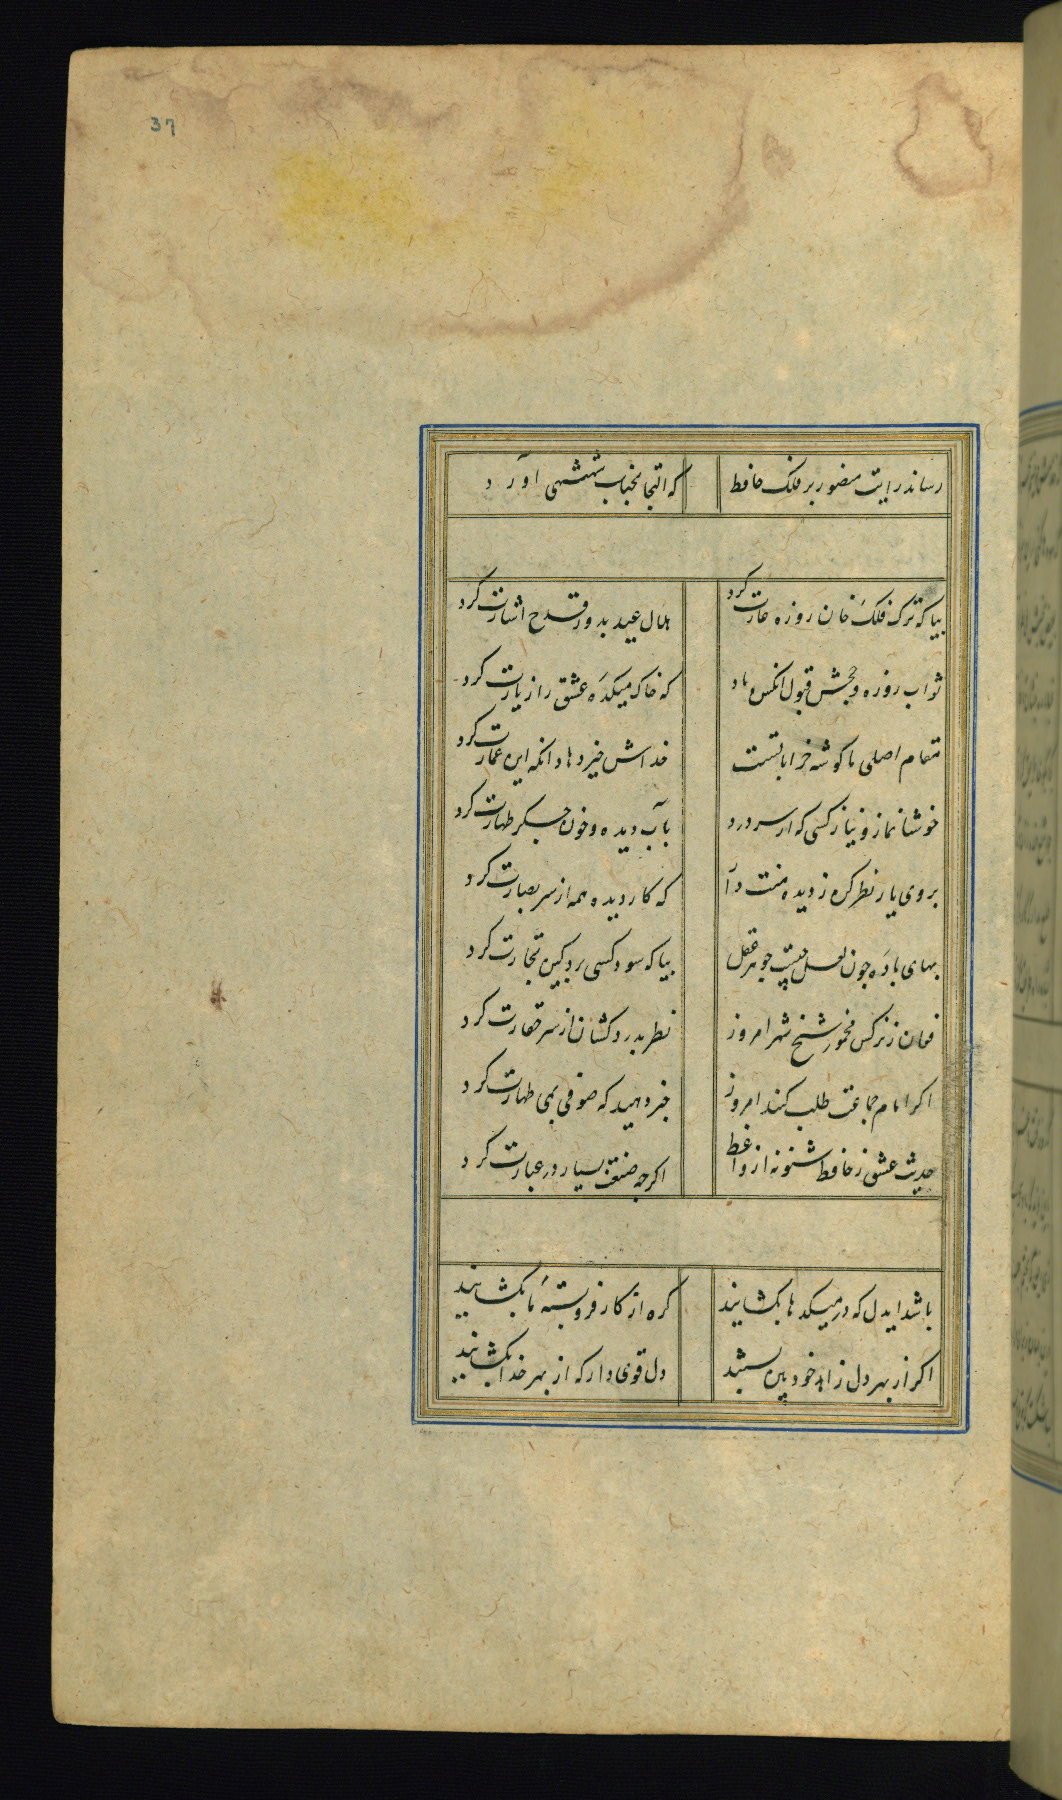 37
رساند رایت منصور بر فلک حافظ که التجا بجناب شهنشهی آورد
بیا که ترک فلک خان روزه غارت کرد هلال عید بدور قدح اشارت کرد
ثواب روزه و حج قبول انکس باد که خاک میکده عشق را زیارت کرد
مقام اصلی ما کوشه خراباتست خداش خیر دهاد انکه این عمارت کرد
خوشا نماز و نیاز کسی که از سر درد بآب دیده و خون جکر طهارت کرد
بروی یار نظر کن ز دیده منت دار که کار دیده همه از سر بصارت کرد
بهای باده چون لعل چیست جوهر عقل بیا که سود کسی برد کین تجارت کرد
فغان ز نرکس مخمور شیخ شهر امروز نظر بدردکشان از سر حقارت کرد
اکر امام جماعت طلب کند امروز خبر دهید که صوفی بمی طهارت کرد
حدیث عشق ز حافظ شنو نه از واعظ اکرچه صنعت بسیار در عبارت کرد
باشد ایدل که در میکدها بکشایند کره از کار فروبسته ما بکشایند
اکر از بهر دل زاهد خودبین بستند دل قوی دار که از بهر خدا بکشایند